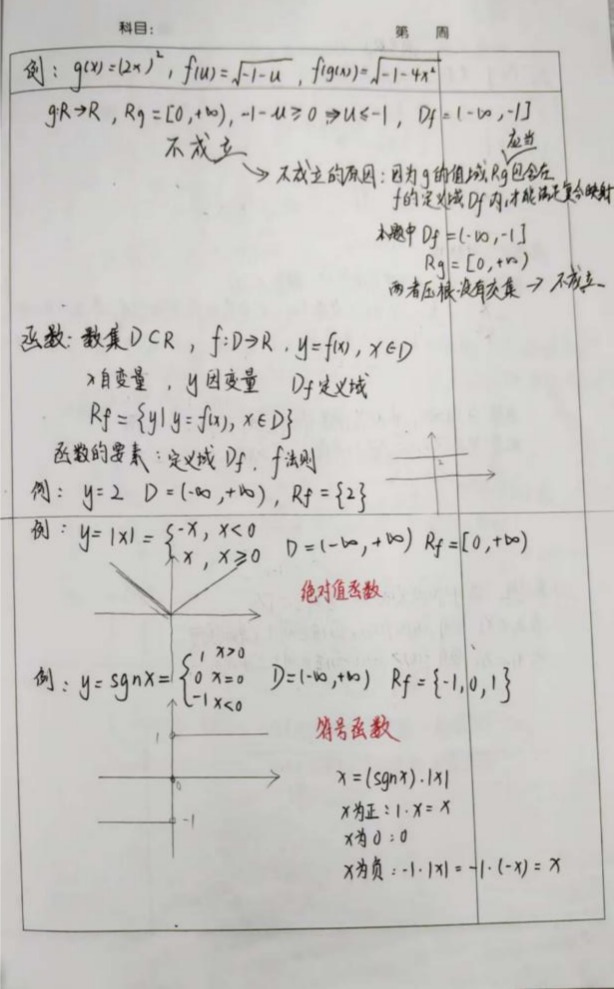 科目: 第 周
例: g(x)=(2x)², f(u)=√(-1-u), f(g(x))=√(-1-4x²)
g:R→R, Rg=[0,+∞), -1-u≥0 ⇒ u≤-1, Df=(-∞,-1]
不成立
应当
→ 不成立的原因: 因为g的值域Rg包含在
f的定义域Df内,才能满足复合映射
本题中 Df=(-∞,-1]
Rg=[0,+∞)
两者压根没有交集 → 不成立
函数: 数集D⊂R, f:D→R, y=f(x), x∈D
x自变量, y因变量 Df定义域
Rf={y|y=f(x), x∈D}
函数的要素: 定义域Df, f法则
例: y=2 D=(-∞,+∞), Rf={2}
2
例: y=|x|={-x, x<0
x, x≥0 D=(-∞,+∞) Rf=[0,+∞)
绝对值函数
例: y=sgnx={1 x>0
0 x=0 D=(-∞,+∞) Rf={-1,0,1}
-1 x<0
符号函数
1
0
-1
x=(sgnx)·|x|
x为正: 1·x=x
x为0: 0
x为负: -1·|x|=-1·(-x)=x